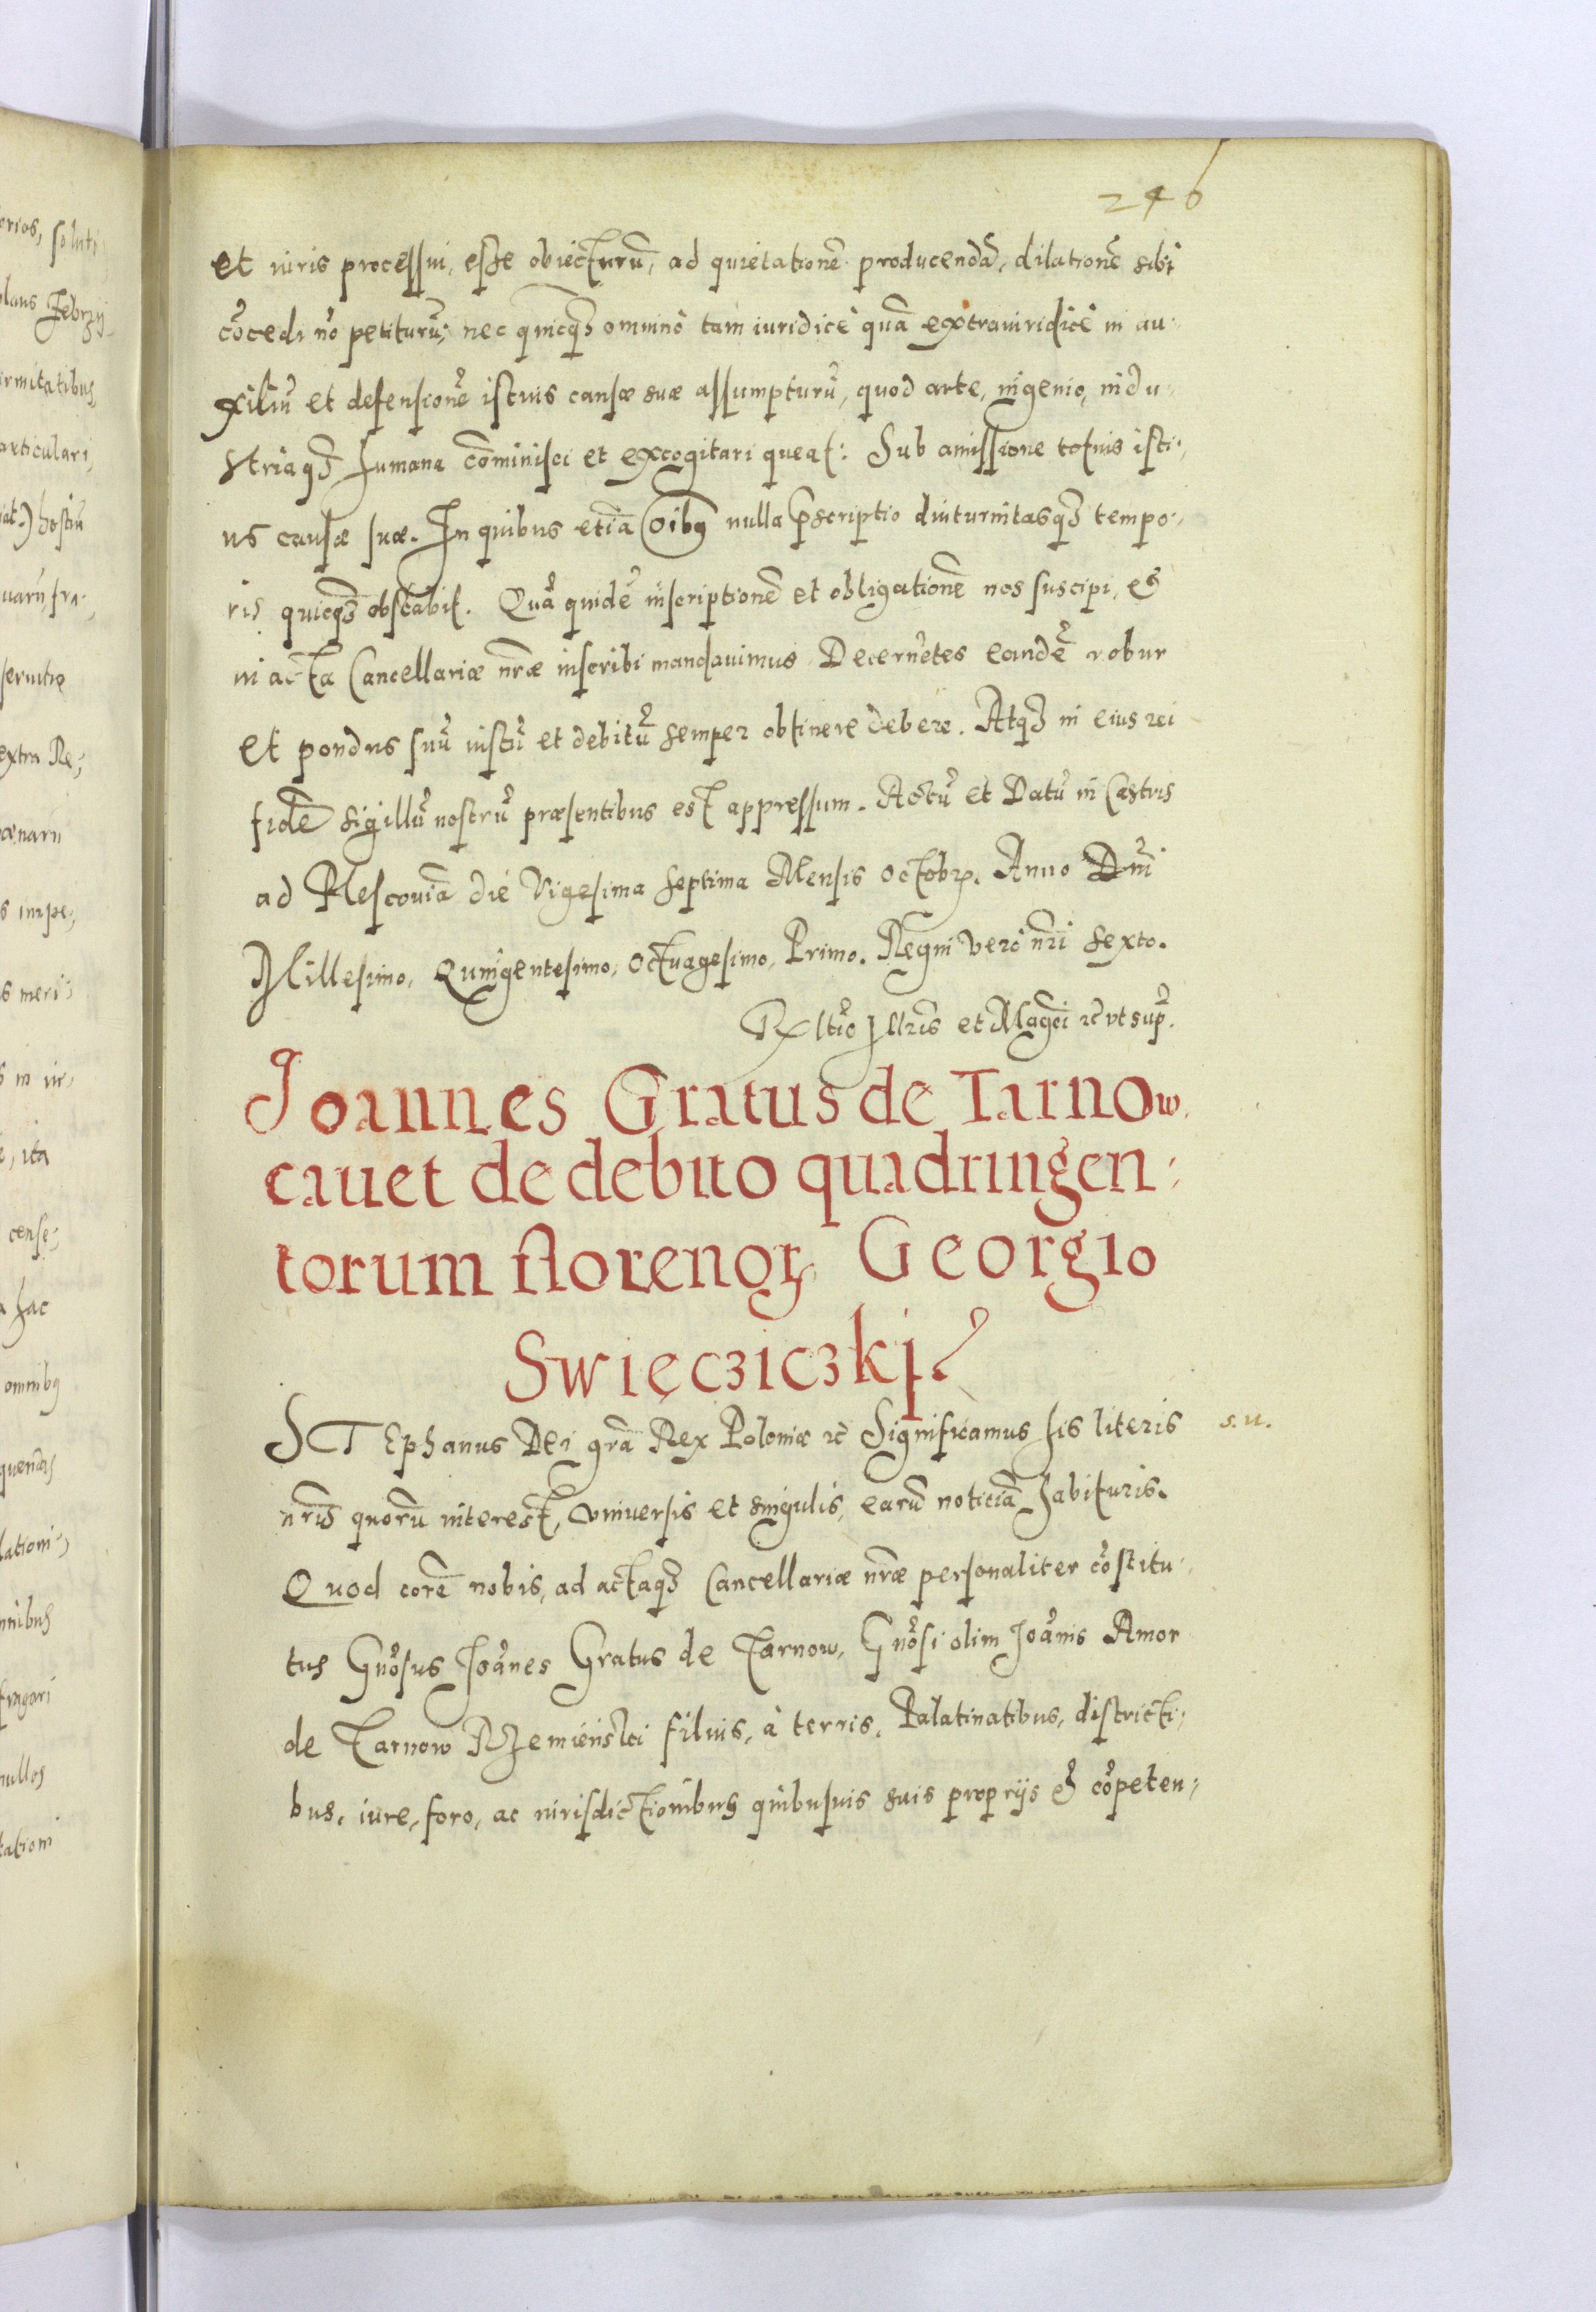 246
et iuris processui, esse obiecturū, ad quietationē producendā, dilationē sibi
cōcedi nō petiturū; nec quicq̃ omnino tam iuridicè quā extraiuridicè in au-
xiliū et defensionē istius causæ suæ assumpturū, quod arte, ingenio, indu-
striaq3 humana cōminisci et excogitari queat: Sub amissione totius isti-
us causæ suæ. In quibus etiā oībꝰ nulla p̄scriptio diuturnitasq3 tempo-
ris quicq̃ obstabit. Quā quidē inscriptionē et obligationē nos suscipi, &
in acta Cancellariæ nr̃æ inscribi mandauimus. Decernētes eandē robur
et pondus suū iustū et debitū semper obtinere debere. Atq3 in eius rei
fidē sigillū nostrū præsentibus est appressum. Actū et Datū in Castris
ad Plescouiā die Vigesima septima Mensis Octobrꝭ. Anno Dn̄i
Millesimo, Quingentesimo, Octuagesimo, Primo. Regni vero nr̃i sexto.
Rltio Illris et Magci ꝛc̃ vt sup̄.
Joannes Gratus de Tarnow
cauet de debito quadringen-
torum florenoꝝ Georgio
Swięcziczkj.
STEphanus Dei grā Rex Poloniæ ꝛc̃ Significamus his literis
s. u.
nr̃is quorū interest, vniuersis et singulis, earū noticiā habituris.
Quod corā nobis, ad actaq3 Cancellariæ nr̃æ personaliter cōstitu-
tus Gnōsus Joānes Gratus de Tarnow, Gnōsi olim Joānis Amor
de Tarnow Rzemienski filius, à terris, Palatinatibus, districti-
bus, iure, foro, ac iurisdictionibus quibusuis suis proprijs & cōpeten-